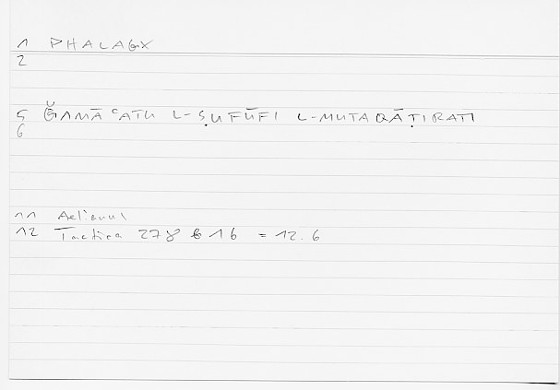 1 PHALAGX
2
5 ǦAMĀʿATU L-ṢUFŪFI L-MUTAQĀṬIRATI
6
11 Aelianus
12 Tactica 278 b 16 = 12.6